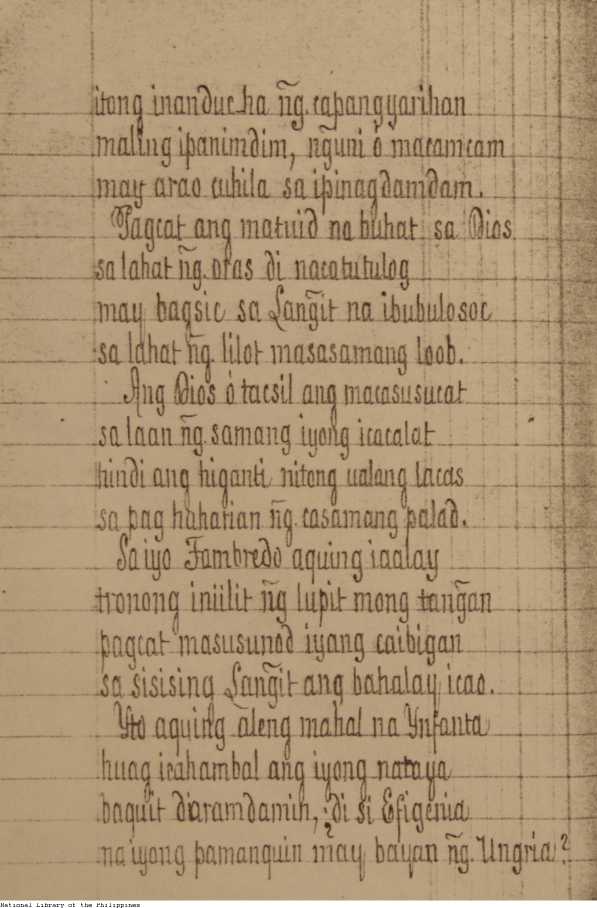 itong inanducha n͠g. capangyarihan
maling ipanimdim, n͠guni ó macamcam
may arao cuhila sa ipinagdamdam.
Pagcat ang matuid na buhat sa Dios
sa lahat n͠g. oras di nacatutulog
may bagsic sa Lan͠git na ibubulosoc
sa lahat n͠g. lilot masasamang loob.
Ang Dios ó tacsil ang macasusucat
sa laan n͠g. samang iyong icacalat
hindi ang higanti nitong ualang lacas
sa pag hahatian n͠g. casamang palad.
Sa iyo Fambredo aquing iaalay
tronong iniilit n͠g lupit mong tan͠gan
pagcat masusunod iyang caibigan
sa sisising Lan͠git ang bahalay icao.
Yto aquing aleng mahal na Ynfanta
huag icahambal ang iyong nataya
baquit diaramdamin, di si Efigenia
na iyong pamanquin may bayan n͠g. Ungria?
National Library of the Philippines